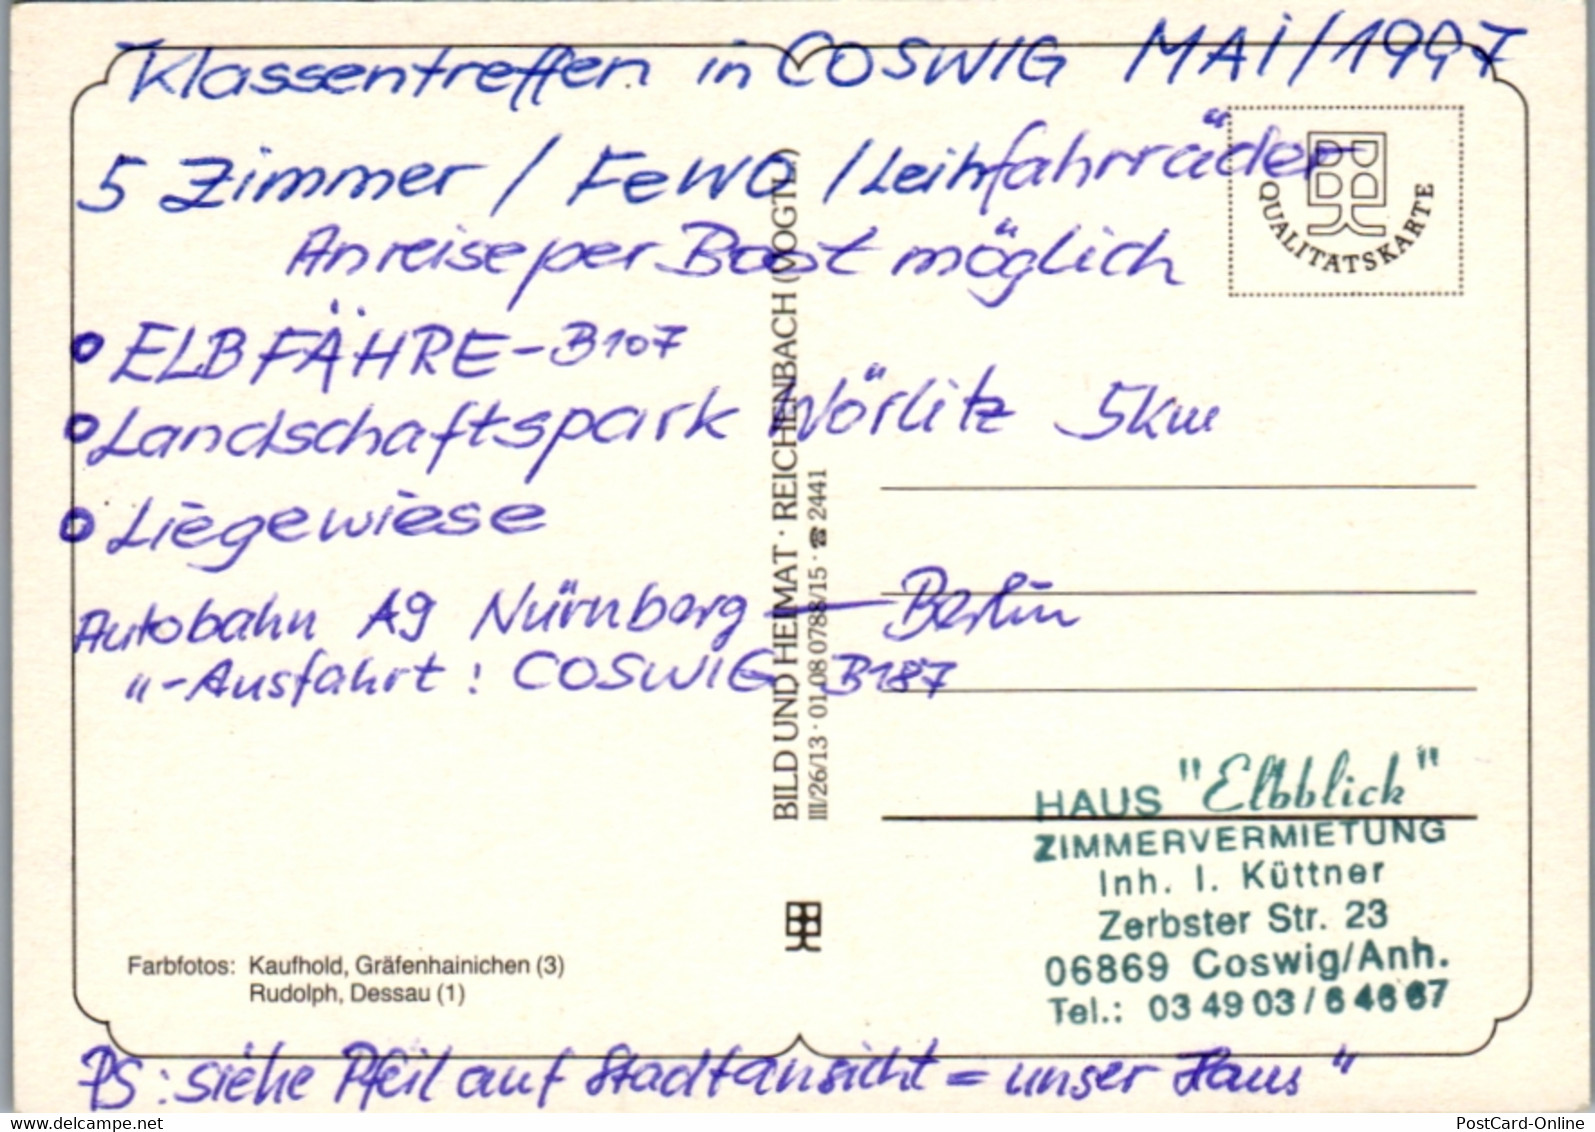 Klassentreffen in COSWIG MAI/1997
5 Zimmer / FeWO / Leihfahrräder
Anreise per Boot möglich
ELBFÄHRE - B107
Landschaftspark Wörlitz 5km
Liegewiese
Autobahn A9 Nürnberg — Berlin
"-Ausfahrt: COSWIG B187
QUALITÄTSKARTE
BILD UND HEIMAT · REICHENBACH (VOGTL)
III/26/13 · 01 08 0788/15 · ☎ 2441
HAUS "Elbblick"
ZIMMERVERMIETUNG
Inh. I. Küttner
Zerbster Str. 23
06869 Coswig/Anh.
Tel.: 03 49 03 / 6 46 67
Farbfotos: Kaufhold, Gräfenhainichen (3)
Rudolph, Dessau (1)
PS: siehe Pfeil auf Stadtansicht = unser Haus "
www.delcampe.net
PostCard-Online